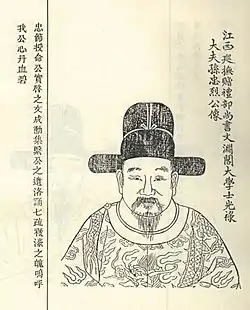 江西巡撫贈禮部尚書文淵閣大學士光祿
大夫孫忠烈公像
忠節授命公實啓之文成勳集繫公之遺洛誦七疏褫濠之魄嗚呼
我公心丹血碧